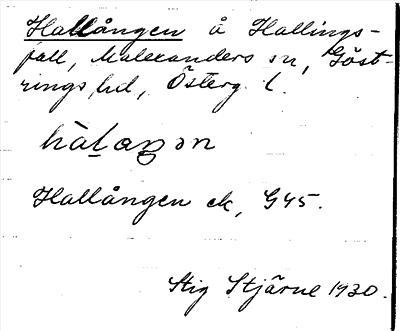 Hallången å Hallings-
fall, Malexanders sn, Göst-
rings hd, Österg. l.
Hallången ek, G45.
Stig Stjärne 1930.